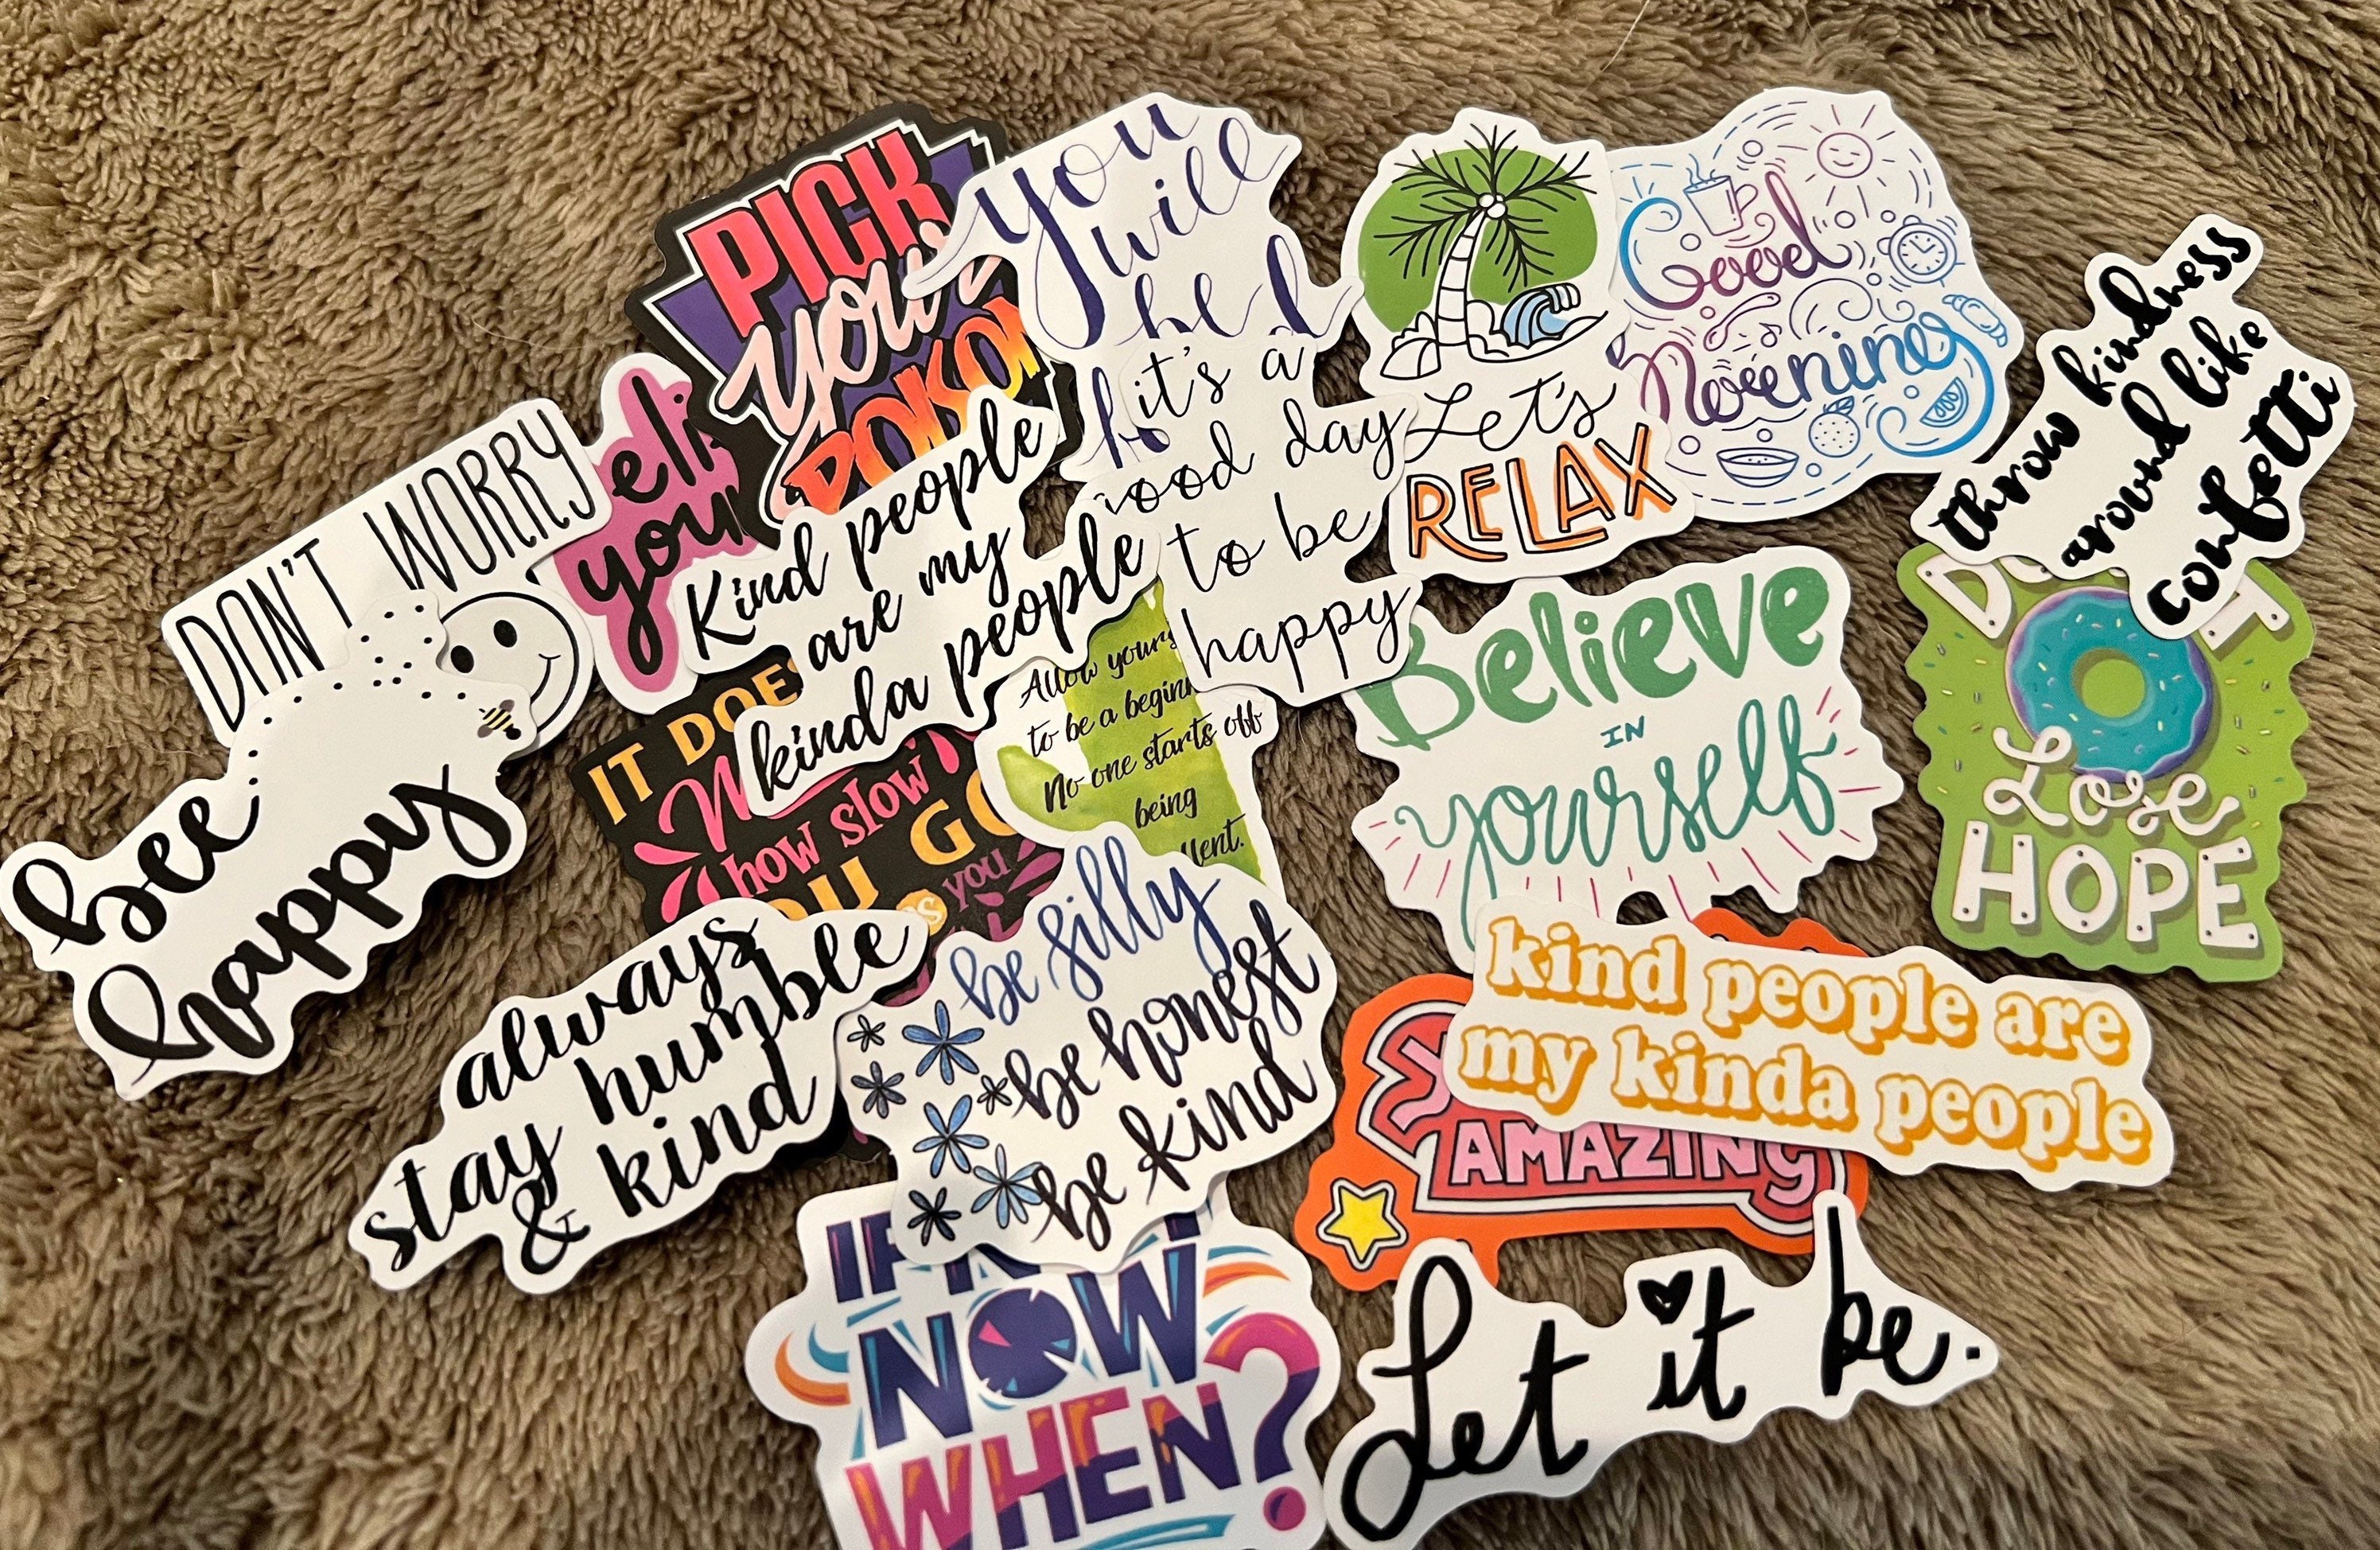 PICK
your
POISON
you
will
be
it's a
good day
to be
happy
Let's
RELAX
Good
Morning
throw kindness
around like
confetti
DON'T WORRY
bee
happy
eli
your
Kind people
are my
kinda people
IT DOE
how slow
YOU GO
you
Allow yours
to be a beginn
No one starts off
being
llent.
Believe
IN
yourself
DO T
Lose
HOPE
always
stay humble
& kind
be silly
be honest
be kind
kind people are
my kinda people
AMAZING
IF N
NOW
WHEN?
Let it be.